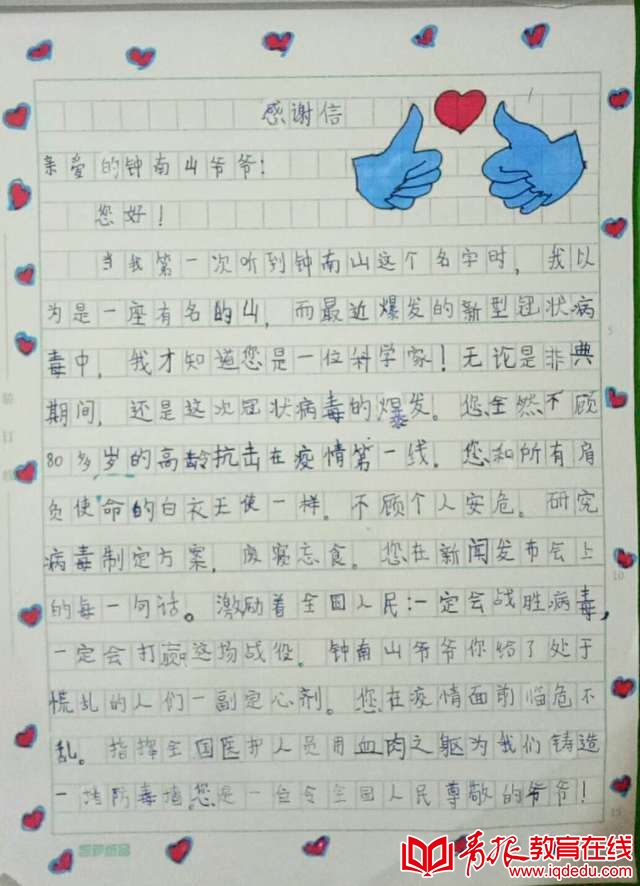 感谢信
亲爱的钟南山爷爷：
您好！
当我第一次听到钟南山这个名字时，我以
为是一座有名的山，而最近爆发的新型冠状病
毒中，我才知道您是一位科学家！无论是非典
期间，还是这次冠状病毒的爆发。您全然不顾
80多岁的高龄抗击在疫情第一线。您和所有肩
负使命的白衣天使一样。不顾个人安危。研究
病毒制定方案，废寝忘食。您在新闻发布会上
的每一句话。激励着全国人民：一定会战胜病毒，
一定会打赢这场战役。钟南山爷爷你给了处于
慌乱的人们一副定心剂。您在疫情面前临危不
乱。指挥全国医护人员用血肉之躯为我们铸造
一堵防毒墙您是一位令全国人民尊敬的爷爷！
青报教育在线
www.iqdedu.com